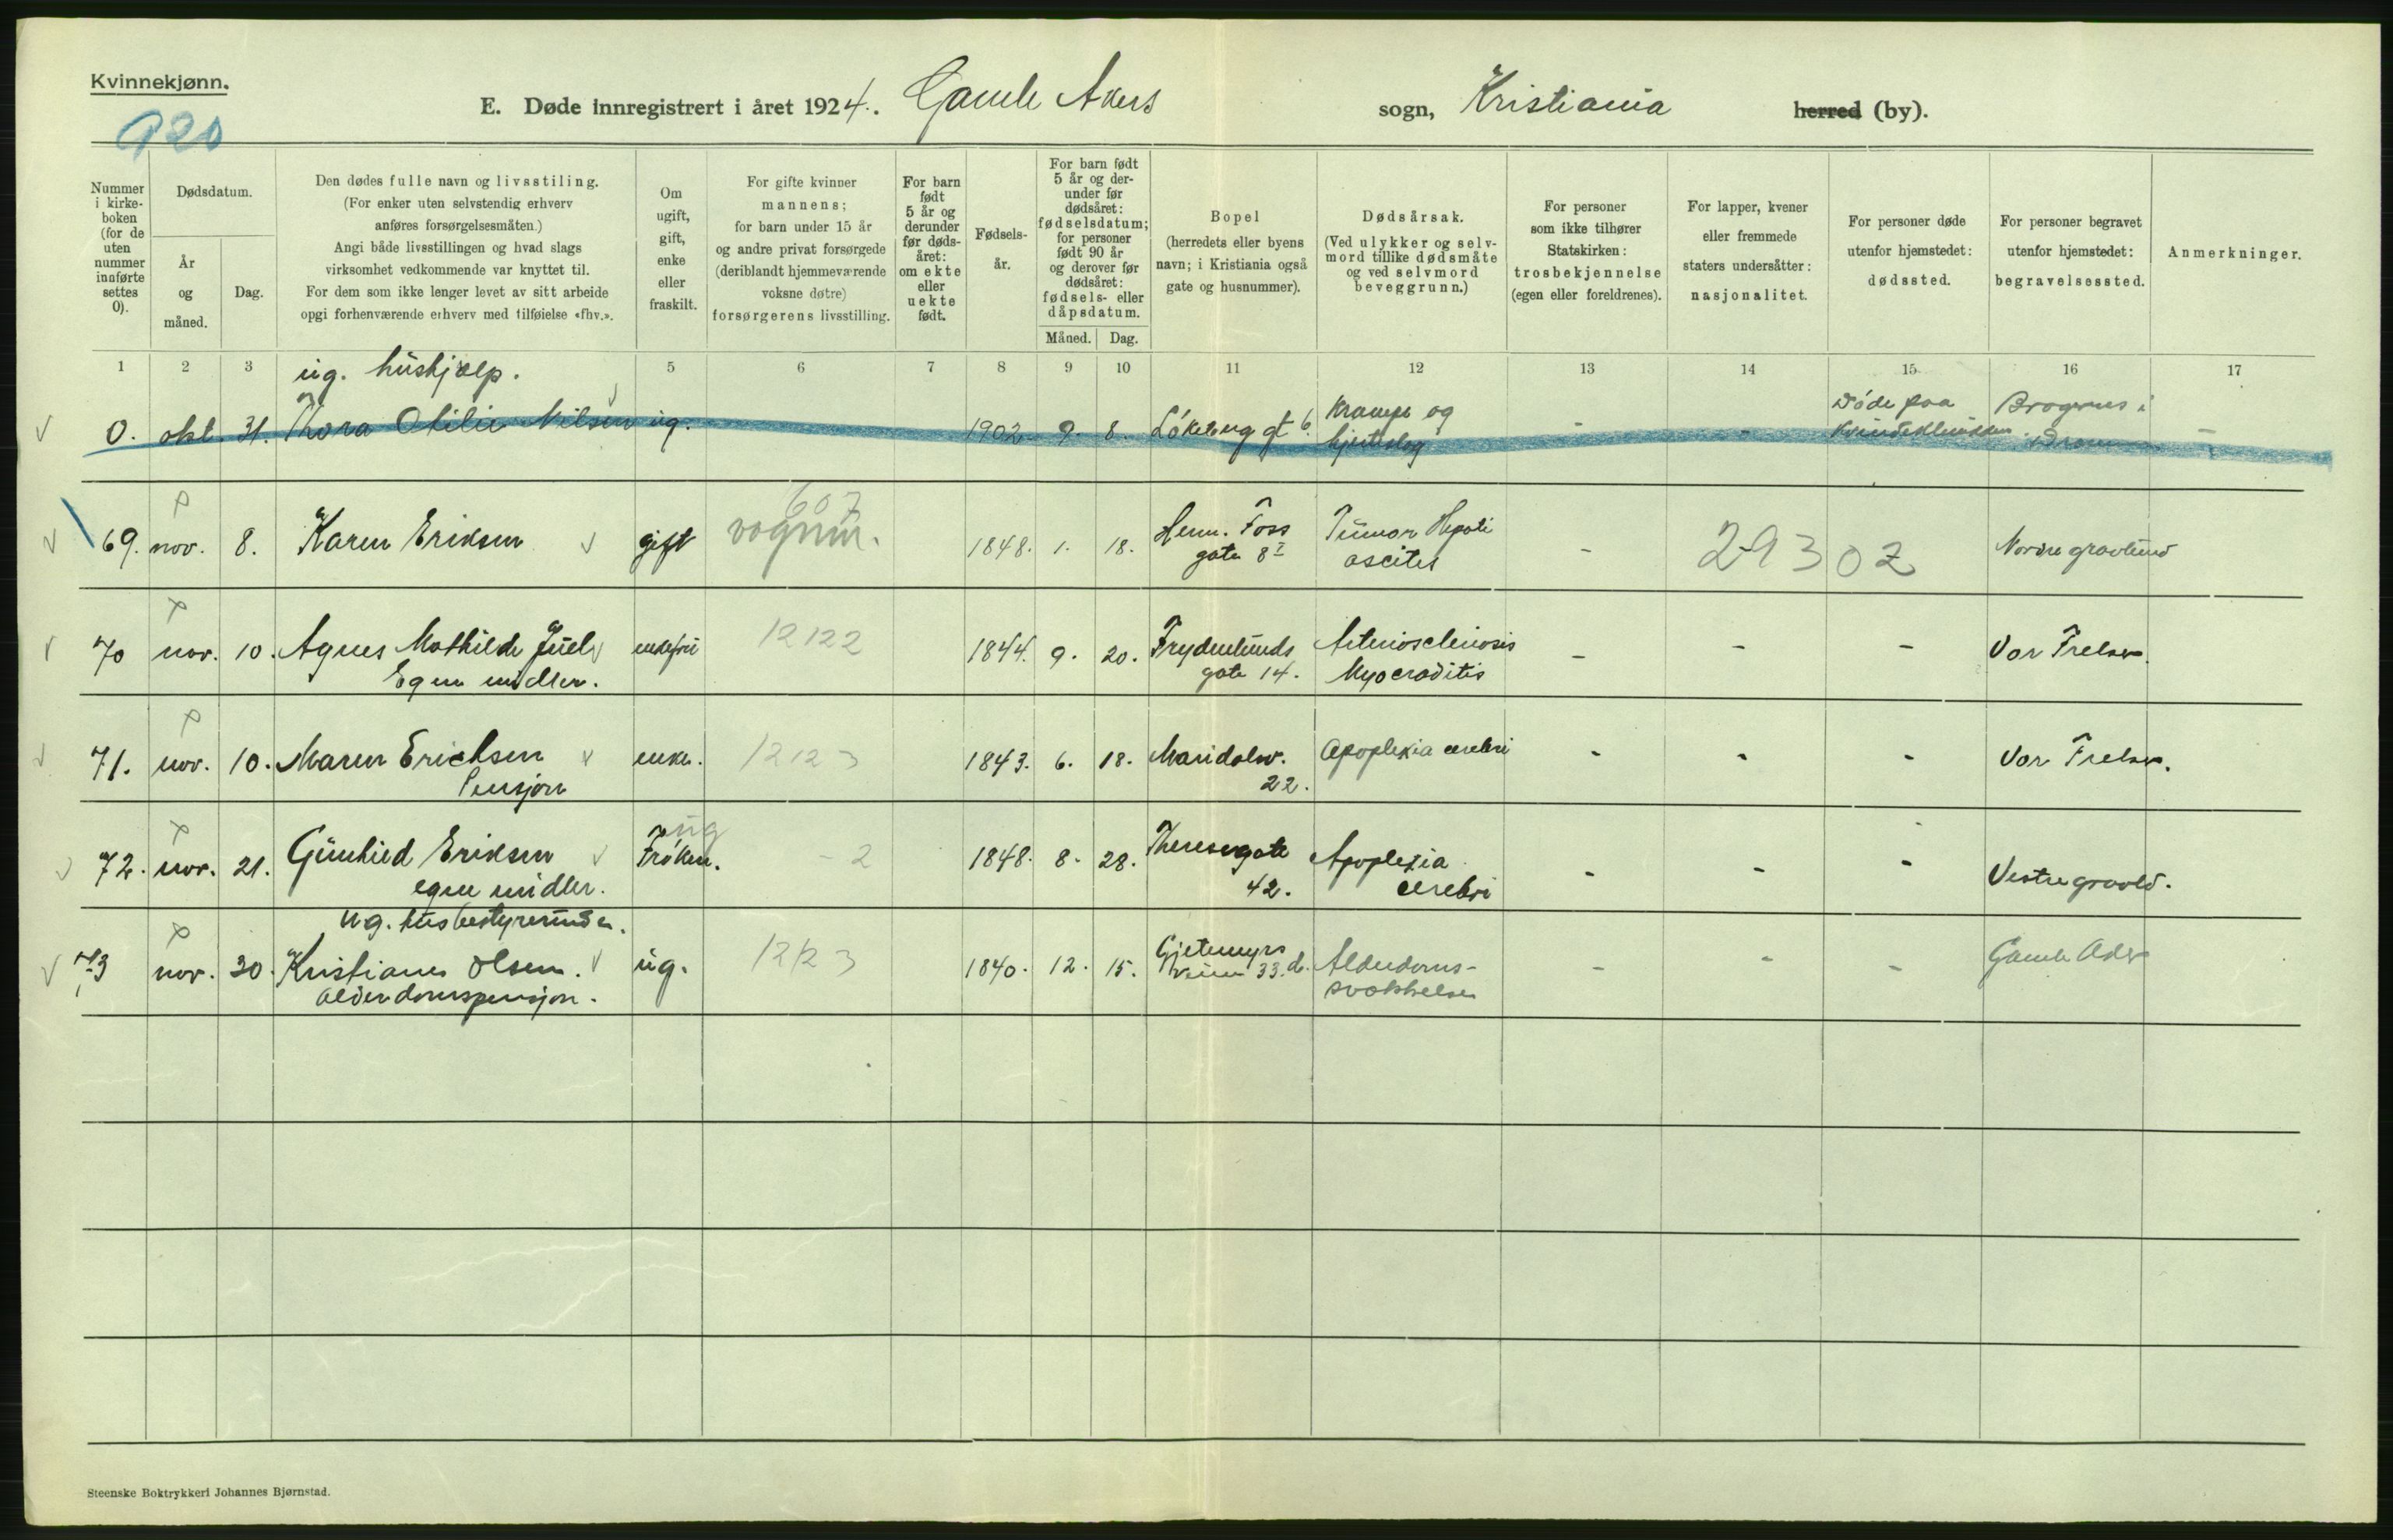 Kvinnekjønn.
920
E. Døde innregistrert i året 1924. Gamle Akers sogn, Kristiania herred (by).
Nummer i kirkeboken (for de uten nummer innførte settes 0).
Dødsdatum.
År og måned.
Dag.
Den dødes fulle navn og livsstiling.
(For enker uten selvstendig erhverv
anføres forsørgelsesmåten.)
Angi både livsstillingen og hvad slags
virksomhet vedkommende var knyttet til.
For dem som ikke lenger levet av sitt arbeide
opgi forhenværende erhverv med tilføielse «fhv.».
Om ugift, gift, enke eller fraskilt.
For gifte kvinner
mannens;
for barn under 15 år
og andre privat forsørgede
(deriblandt hjemmeværende
voksne døtre)
forsørgerens livsstilling.
For barn født 5 år og derunder før dødsåret: om ekte eller uekte født.
Fødselsår.
For barn født 5 år og derunder før dødsåret: fødselsdatum; for personer født 90 år og derover før dødsåret: fødsels- eller dåpsdatum.
Måned. Dag.
Bopel
(herredets eller byens
navn; i Kristiania også
gate og husnummer).
Dødsårsak.
(Ved ulykker og selvmord tillike dødsmåte
og ved selvmord
beveggrunn.)
For personer
som ikke tilhører
Statskirken:
trosbekjennelse
(egen eller foreldrenes).
For lapper, kvener
eller fremmede
staters undersåtter:
nasjonalitet.
For personer døde
utenfor hjemstedet:
dødssted.
For personer begravet
utenfor hjemstedet:
begravelsessted.
Anmerkninger.
1 2 3 5 6 7 8 9 10 11 12 13 14 15 16 17
ug. hushjælp.
0. okt. 31. Thora Otilie Nilsen ug. 1902 9. 8. Løkeberg gt 6. Krampe og hjerteslag - - Døde paa Kvindeklinikken. Bragernes i Dramm -
607
69. nov. 8. Karen Eriksen gift vognm. 1848. 1. 18. Henr. Foss gate 8 I Tumor Hepati ascites - 29302 Nordre gravlund
70 nov. 10. Agnes Mathilde Juel enkefru 12122 1844. 9. 20. Frydenlunds gate 14. Arteriosclerosis Myocraditis - - - Vor Frelser.
Egne midler.
71. nov. 10. Maren Erichsen enke. 12123 1843. 6. 18. Maridalsv. 22. Apoplexia cerebri - - - Vor Frelser.
Pensjon
ug
72. nov. 21. Gunhild Eriksen Frøken. - 2 1848. 8. 28. Theresesgate 42. Apoplexia cerebri - - - Vestre gravld.
egne midler.
ug. husbestyrerinde.
73 nov. 30. Kristiane Olsen. ug. 12123 1840. 12. 15. Gjetemyrs veien 33.d. Alderdoms-svakhelse - - - Gamle Aker
alderdomspensjon.
Steenske Boktrykkeri Johannes Bjørnstad.